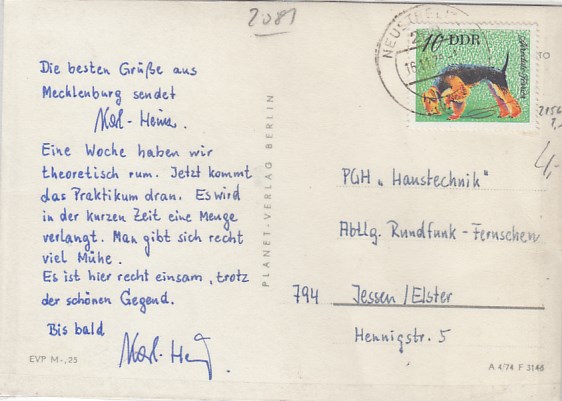 2081
Die besten Grüße aus
Mecklenburg sendet
Karl-Heinz.
Eine Woche haben wir
theoretisch rum. Jetzt kommt
das Praktikum dran. Es wird
in der kurzen Zeit eine Menge
verlangt. Man gibt sich recht
viel Mühe.
Es ist hier recht einsam, trotz
der schönen Gegend.
Bis bald
Karl-Heinz.
EVP M-,25
PLANET-VERLAG BERLIN
10 DDR
PGH „Haustechnik"
Abtlg. Rundfunk-Fernsehen
794 Jessen/Elster
Hennigstr. 5
4,-
A 4/74 F 3146